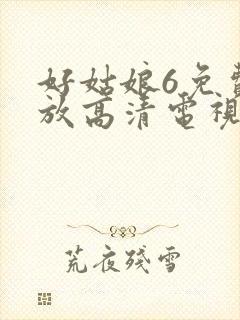 好姑娘6免費
放高清電視
荒夜殘雪